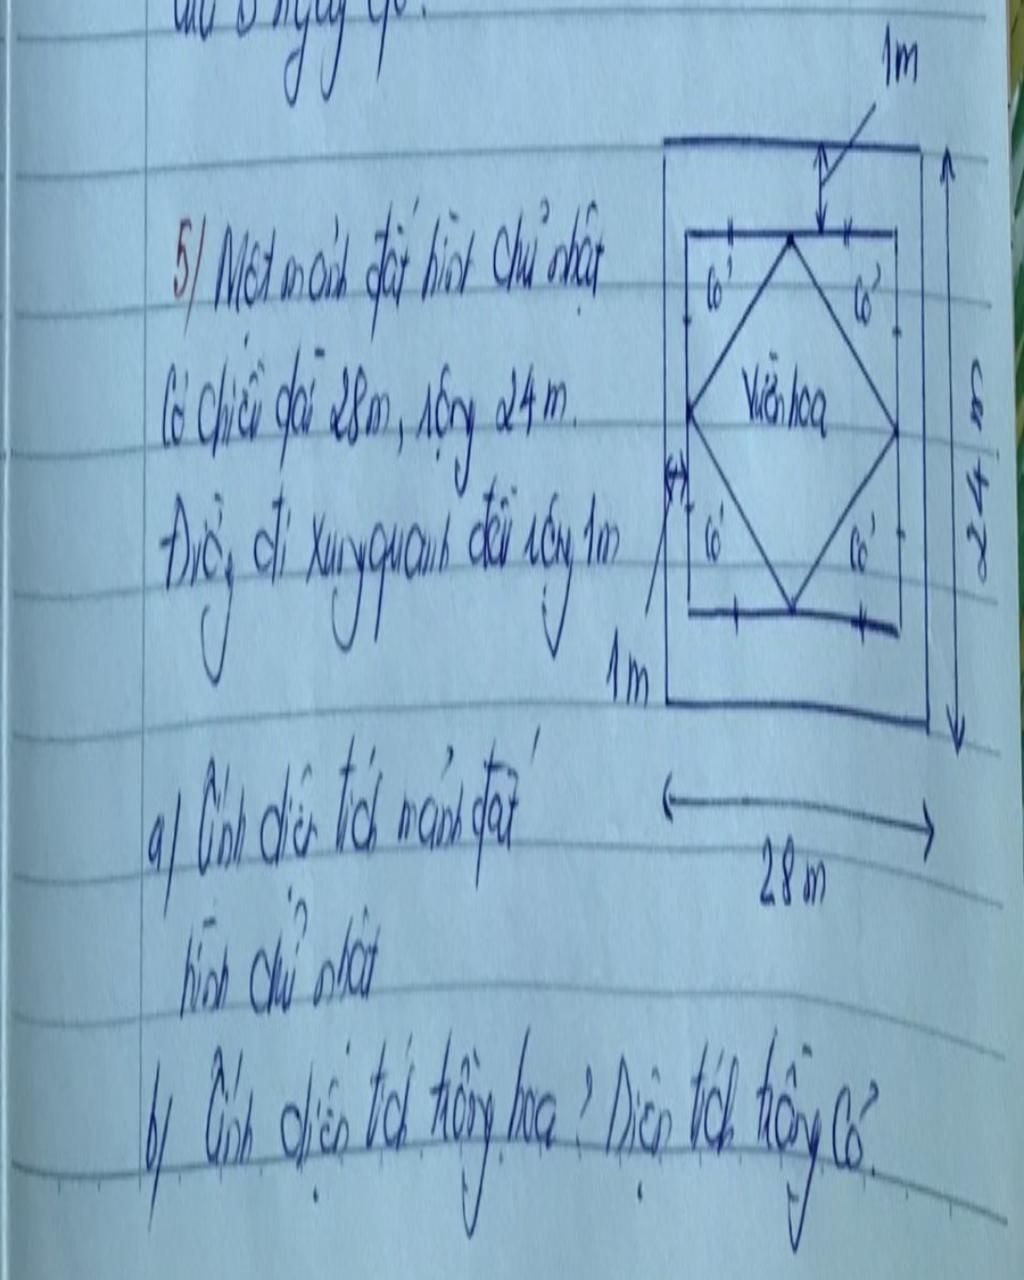 1m
5/ Một mảnh đất hình chữ nhật
Có chiều dài 28m, rộng 24m.
Đường đi xung quanh đều rộng 1m
cỏ
cỏ
Vườn hoa
cỏ
cỏ
24 m
1m
28 m
a) Tính diện tích mảnh đất
hình chữ nhật
b) Tính diện tích trồng hoa? Diện tích trồng cỏ?